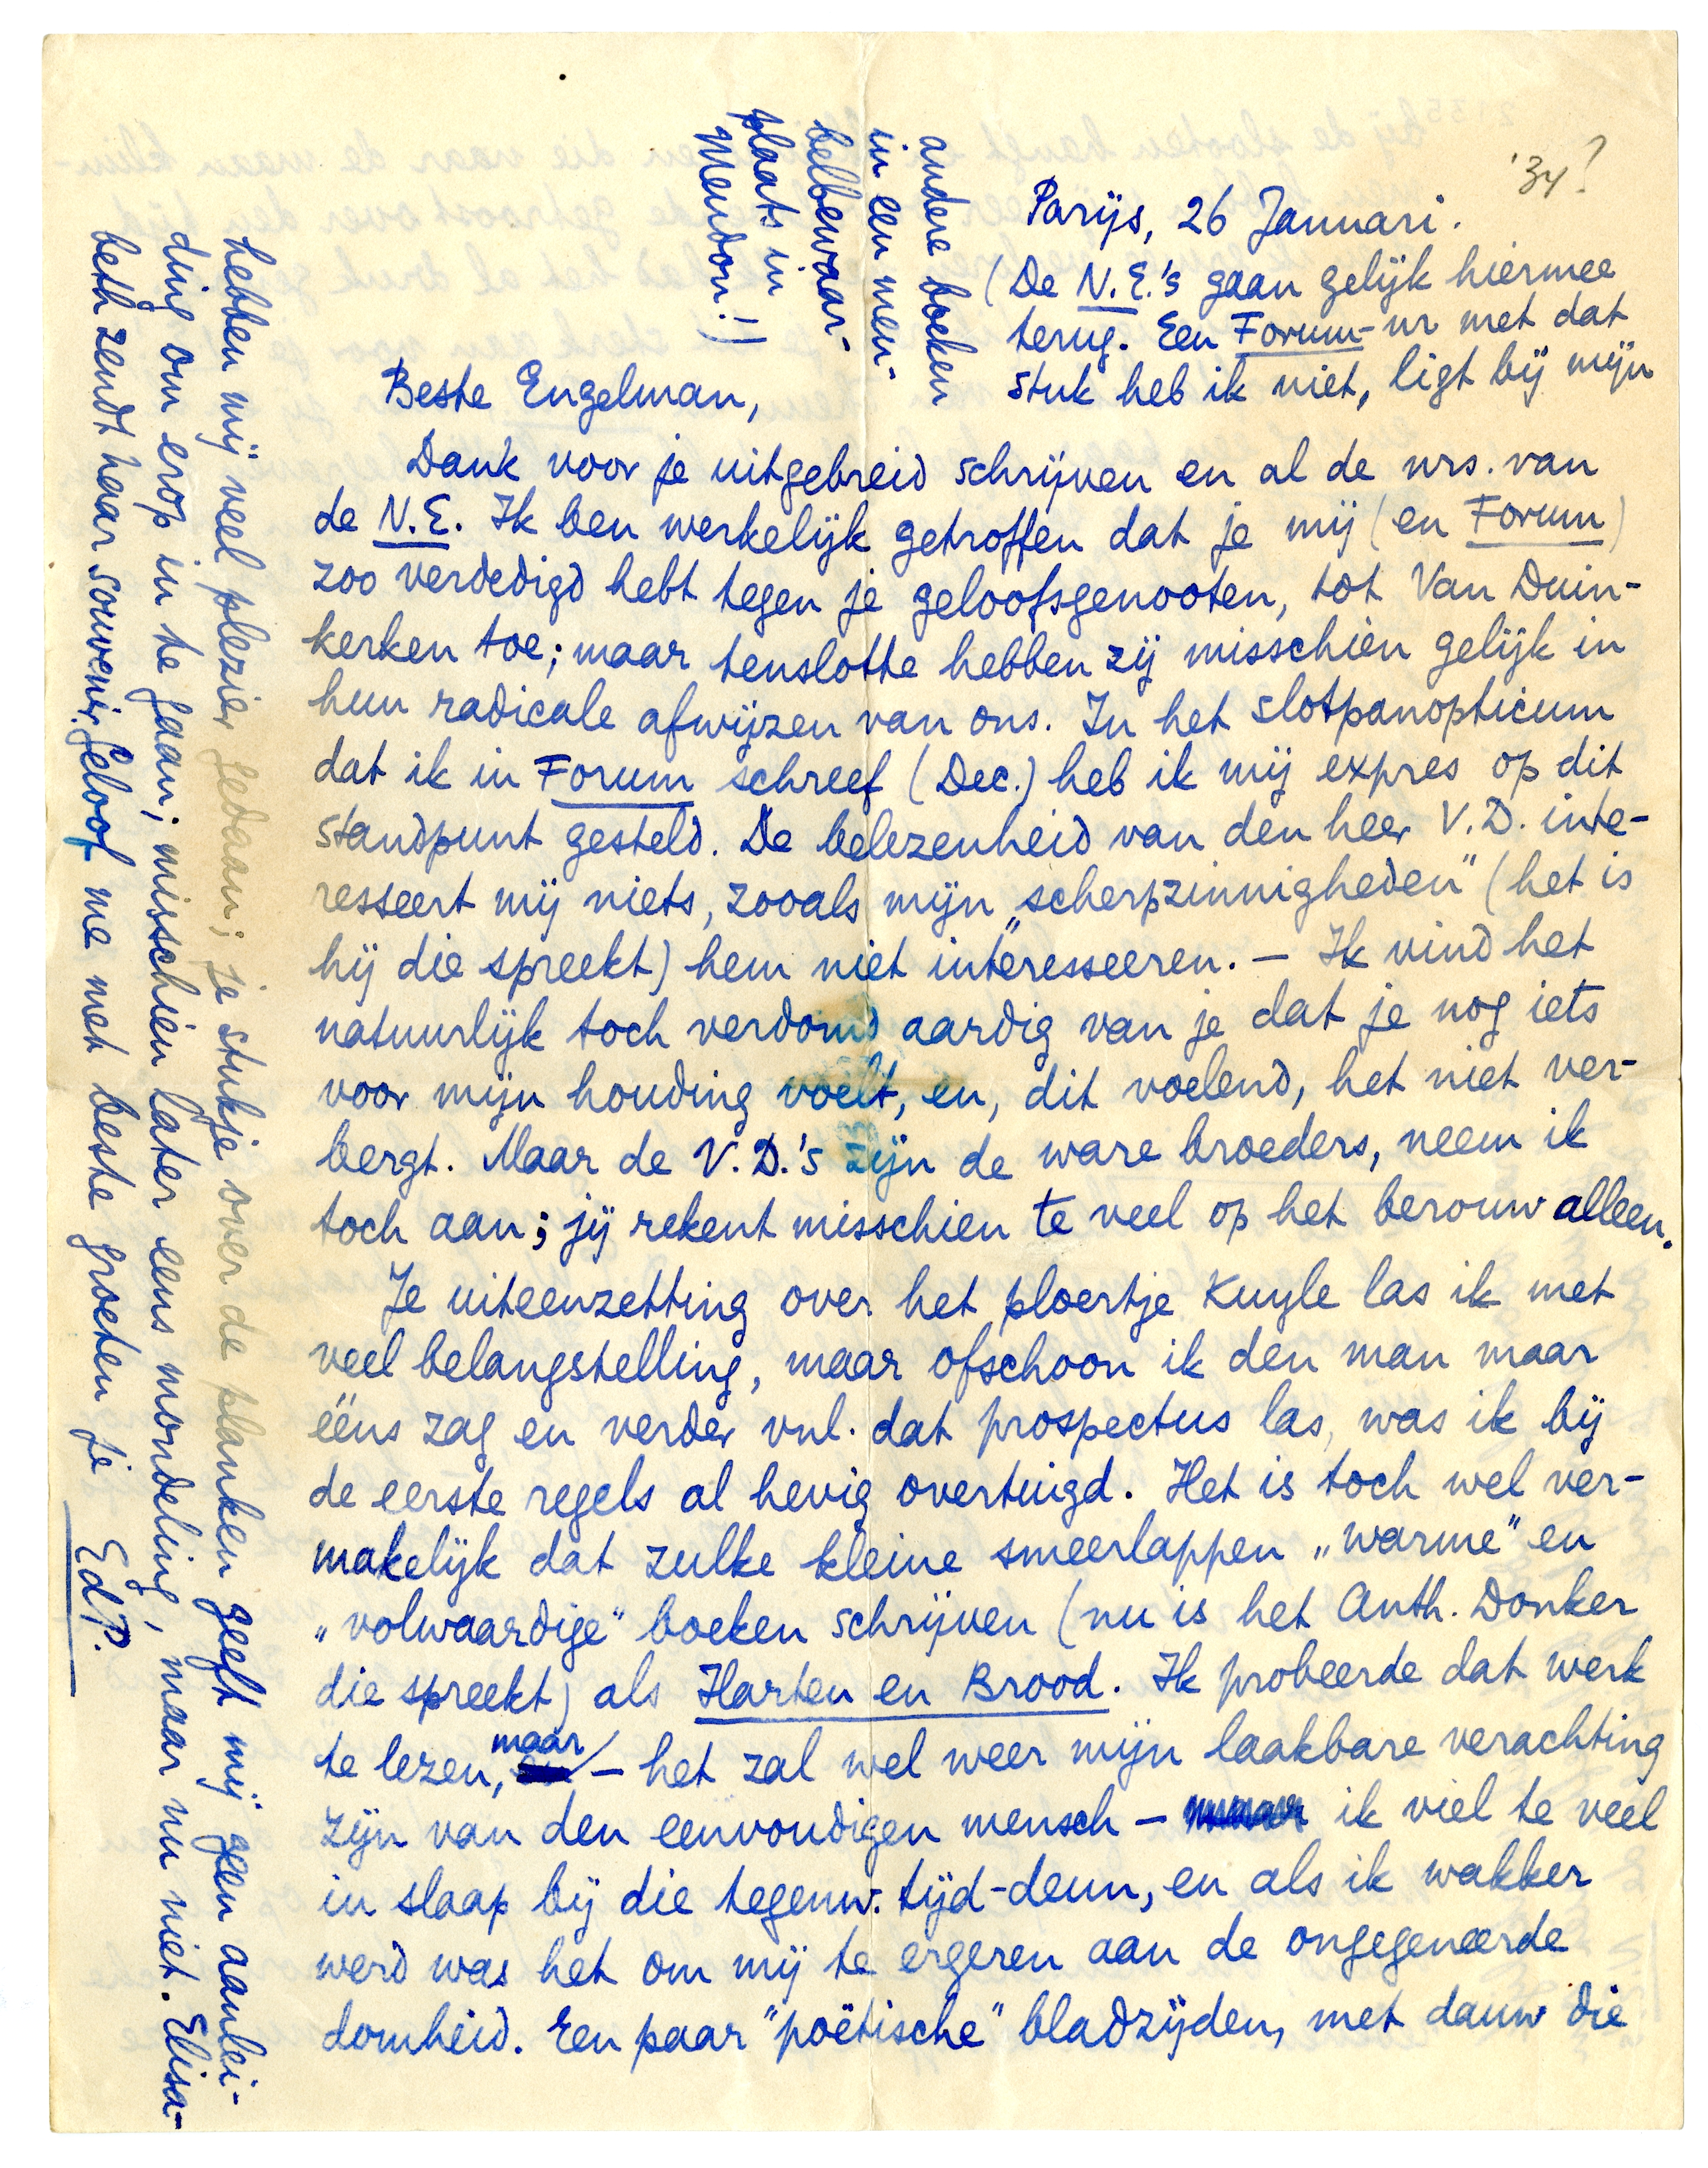 '34?
Parijs, 26 Januari.
(De N.E.'s gaan gelijk hiermee
terug. Een Forum-nr met dat
stuk heb ik niet, ligt bij mijn
andere boeken
in een meu-
belbewaar-
plaats in
Meudon!)
Beste Engelman,
Dank voor je uitgebreid schrijven en al de nrs. van
de N.E. Ik ben werkelijk getroffen dat je mij (en Forum)
zoo verdedigd hebt tegen je geloofsgenooten, tot Van Duin-
kerken toe; maar tenslotte hebben zij misschien gelijk in
hun radicale afwijzen van ons. In het slotpanopticum
dat ik in Forum schreef (Dec.) heb ik mij expres op dit
standpunt gesteld. De belezenheid van den heer V.D. inte-
resseert mij niets, zooals mijn „scherpzinnigheden" (het is
hij die spreekt) hem niet interesseeren. – Ik vind het
natuurlijk toch verdomd aardig van je dat je nog iets
voor mijn houding voelt, en, dit voelend, het niet ver-
bergt. Maar de V.D.'s zijn de ware broeders, neem ik
toch aan; jij rekent misschien te veel op het berouw alleen.
Je uiteenzetting over het ploertje Kuyle las ik met
veel belangstelling, maar ofschoon ik den man maar
ééns zag en verder vnl. dat prospectus las, was ik bij
de eerste regels al hevig overtuigd. Het is toch wel ver-
makelijk dat zulke kleine smeerlappen „warme" en
„volwaardige" boeken schrijven (nu is het Anth. Donker
die spreekt) als Harten en Brood. Ik probeerde dat werk
te lezen, maar – het zal wel weer mijn laakbare verachting
zijn van den eenvoudigen mensch – ik viel te veel
in slaap bij die tegenw. tijd-deun, en als ik wakker
werd was het om mij te ergeren aan de ongegeneerde
domheid. Een paar "poëtische" bladzijden, met dauw die
hebben mij veel plezier gedaan; je stukje over de planken geeft mij geen aanlei-
ding om erop in te gaan; misschien later eens mondeling, maar nu niet. Elisa-
beth zendt haar souvenir. Geloof me met beste groeten je EdP.